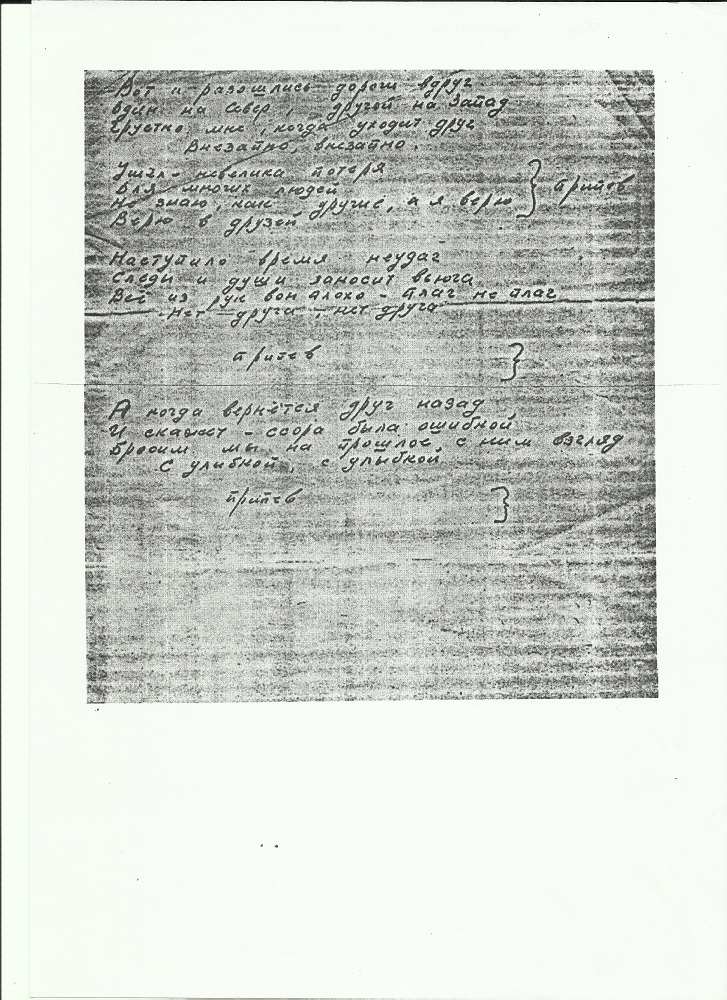 Вот и разошлись дороги вдруг
Один на Север, другой на Запад
Грустно мне, когда уходит друг
Внезапно, внезапно.
Ушёл - невелика потеря
Для многих людей
Не знаю, как другие, а я верю } припев
Верю в друзей
Наступило время неудач
Следы и души заносит вьюга
Всё из рук вон плохо - плач не плач
Нет друга, нет друга
припев }
А когда вернётся друг назад
И скажет - ссора была ошибкой
Бросим мы на прошлое с ним взгляд
С улыбкой, с улыбкой
припев }